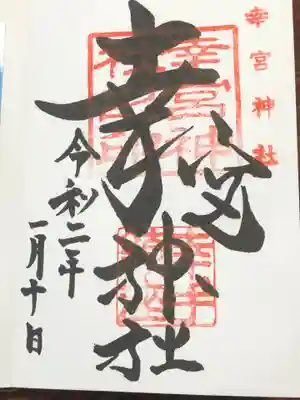 幸宮神社
幸宮神社
令和二年
一月十日